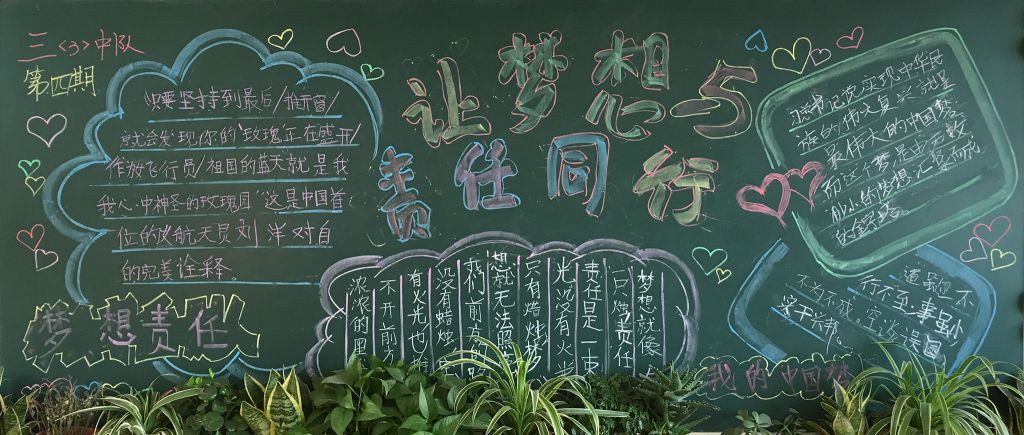 三〈3〉中队
第四期
让梦想与
责任同行
只要坚持到最后/推开窗/
就会发现你的玫瑰正在盛开/
作为飞行员/祖国的蓝天就是我
我心中神圣的玫瑰园"这是中国首
位的女航天员刘洋对自
的完美诠释。
梦想责任
梦想就像
口 烛责任
责任是一束
光没有火
只有蜡烛梦
想就无法
我们前方的
没有蜡烛
有火光也
不开前方
浓浓的黑
习总书记说实现中华民
族的伟大复兴就是
最伟大的中国梦
而这个梦是由无数
的小的梦想汇聚而成
道虽迩不
行不至事虽小
不为不成 空谈误国
实干兴邦。
我的中国梦